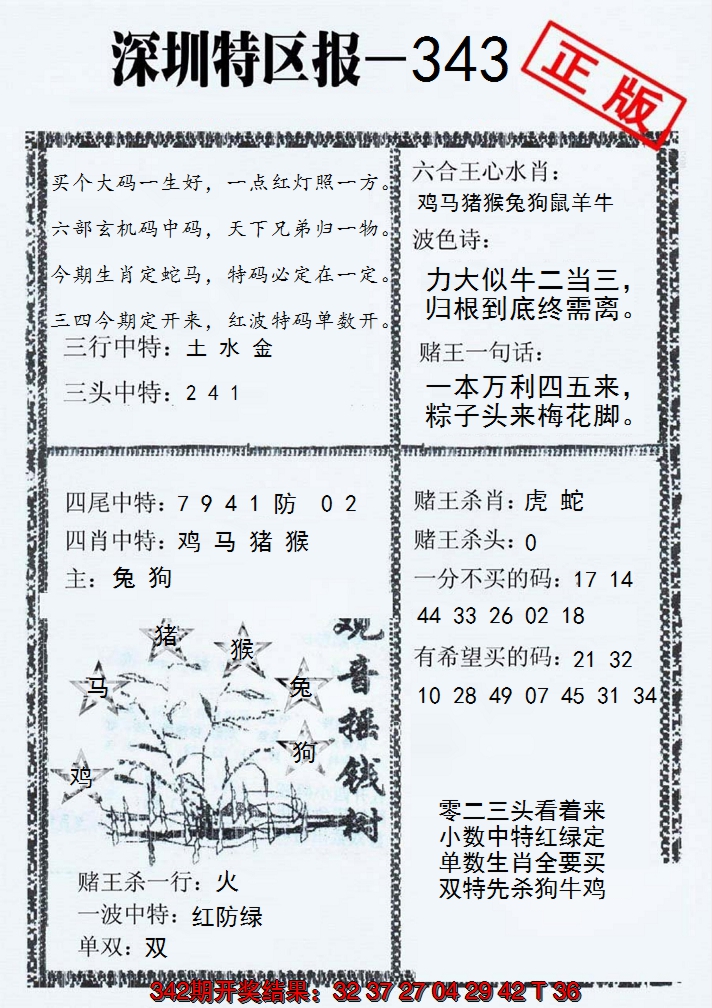 深圳特区报—343
正版
买个大码一生好，一点红灯照一方。
六部玄机码中码，天下兄弟归一物。
今期生肖定蛇马，特码必定在一定。
三四今期定开来，红波特码单数开。
三行中特：土 水 金
三头中特：2 4 1
六合王心水肖：
鸡马猪猴兔狗鼠羊牛
波色诗：
力大似牛二当三，
归根到底终需离。
赌王一句话：
一本万利四五来，
粽子头来梅花脚。
四尾中特：7 9 4 1 防 0 2
四肖中特：鸡 马 猪 猴
主：兔 狗
观音摇钱树
猪
猴
马
兔
狗
鸡
赌王杀一行：火
一波中特：红防绿
单双：双
赌王杀肖：虎 蛇
赌王杀头：0
一分不买的码：17 14
44 33 26 02 18
有希望买的码：21 32
10 28 49 07 45 31 34
零二三头看着来
小数中特红绿定
单数生肖全要买
双特先杀狗牛鸡
342期开奖结果：32 37 27 04 29 42 T 36